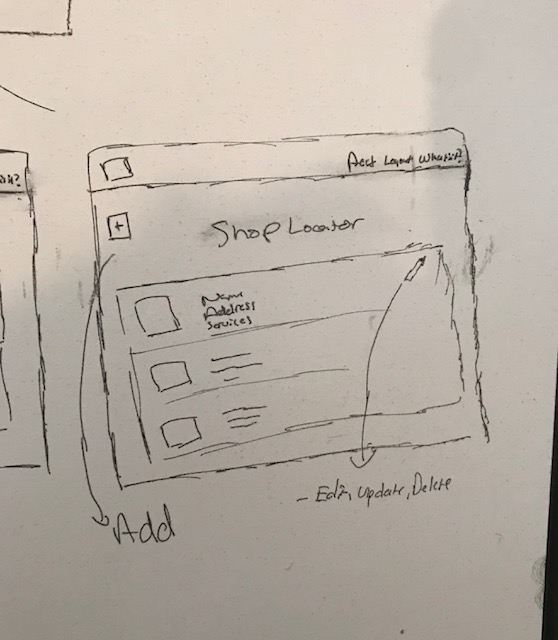 Acct Layout What is it?
+
Shop Locator
Name
Address
Services
- Edit, Update, Delete
Add